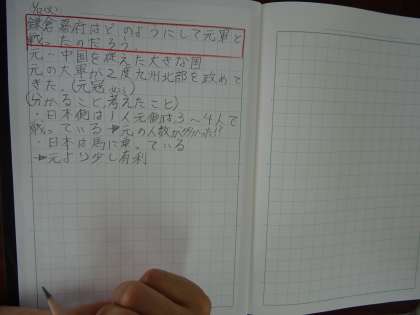 鎌倉幕府はどのようにして元軍と
戦ったのだろう。
元…中国を従えた大きな国
元の大軍が2度九州北部を攻めて
きた。(元寇
(分かること、考えたこと)
・日本側は1人元側は3〜4人で
戦っている→元の人数が多かった!?
・日本は馬に乗っている
→元より少し有利